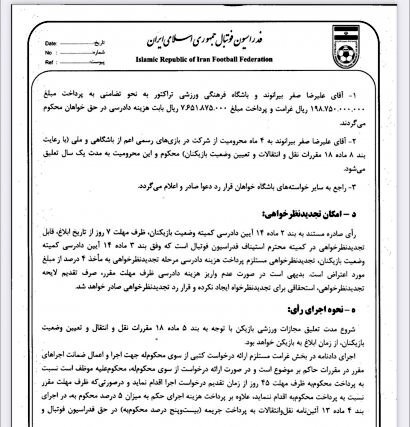 فدراسیون فوتبال جمهوری اسلامی ایران
Islamic Republic of Iran Football Federation
تاریخ:
Date:
شماره:
No :
پیوست:
Ref :
۱- آقای علیرضا صفر بیرانوند و باشگاه فرهنگی ورزشی تراکتور به نحو تضامنی به پرداخت مبلغ
۱۹۸.۷۵۰.۰۰۰.۰۰۰ ریال غرامت و پرداخت مبلغ ۷.۶۵۱.۸۷۵.۰۰۰ ریال بابت هزینه دادرسی در حق خواهان محکوم
می‌گردند.
۲- آقای علیرضا صفر بیرانوند به ۴ ماه محرومیت از شرکت در بازی‌های رسمی اعم از باشگاهی و ملی (با رعایت
بند ۸ ماده ۱۸ مقررات نقل و انتقالات و تعیین وضعیت بازیکنان) محکوم و این محرومیت به مدت یک سال تعلیق
می‌شود.
۳- راجع به سایر خواسته‌های باشگاه خواهان قرار رد دعوا صادر و اعلام می‌گردد.
د – امکان تجدیدنظرخواهی:
رأی صادره مستند به بند ۲ ماده ۱۴ آیین دادرسی کمیته وضعیت بازیکنان، ظرف مهلت ۷ روز از تاریخ ابلاغ، قابل
تجدیدنظرخواهی در کمیته محترم استیناف فدراسیون فوتبال است که وفق بند ۳ ماده ۱۴ آیین دادرسی کمیته
وضعیت بازیکنان، تجدیدنظرخواهی مستلزم پرداخت هزینه دادرسی مرحله تجدیدنظرخواهی به مأخذ ۴ درصد از مبلغ
مورد اعتراض است. بدیهی است در صورت عدم واریز هزینه دادرسی ظرف مهلت مقرر، صرف تقدیم لایحه
تجدیدنظرخواهی، استحقاقی برای تجدیدنظرخواه ایجاد نکرده و قرار رد تجدیدنظرخواهی صادر خواهد شد.
ه – نحوه اجرای رأی:
شروع مدت تعلیق مجازات ورزشی بازیکن با توجه به بند ۵ ماده ۱۸ مقررات نقل و انتقال و تعیین وضعیت
بازیکنان، از زمان ابلاغ به بازیکن خواهد بود.
اجرای دادنامه در بخش غرامت مستلزم ارائه درخواست کتبی از سوی محکوم‌له جهت اجرا و اعمال ضمانت اجراهای
مقرر در مقررات حاکم بر موضوع است و در صورت ارائه درخواست از سوی محکوم‌له، محکوم‌علیه موظف است نسبت
به پرداخت محکوم‌به ظرف مهلت ۴۵ روز از زمان تقدیم درخواست اجرا اقدام نماید و درصورتی‌که ظرف مهلت مقرر
نسبت به پرداخت محکوم‌به اقدام ننماید، علاوه بر پرداخت هزینه اجرای حکم به میزان ۵ درصد محکوم به، در اجرای
بند ۴ ماده ۱۳ آئین‌نامه نقل‌وانتقالات به پرداخت جریمه (بیست‌وپنج درصد محکوم‌به) در حق فدراسیون فوتبال و